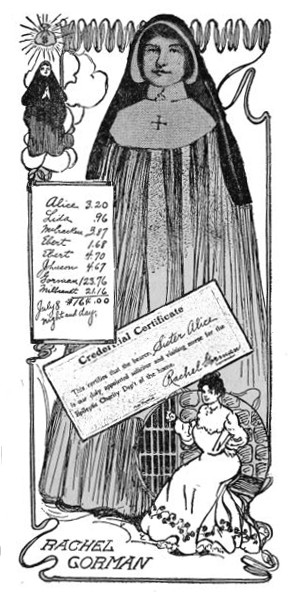 Alice 3.20
Lida .96
3.87
Ebert 1.68
Ebert 4.70
Johnson 4.67
Gorman 123.76
Milbrandt 21.16
July 8 $164.00
night and day.
Credential Certificate
This certifies that the bearer, Sister Alice
is our duly appointed solicitor and visiting nurse for the
Charity Dep't of the home.
Rachel Gorman
RACHEL
GORMAN